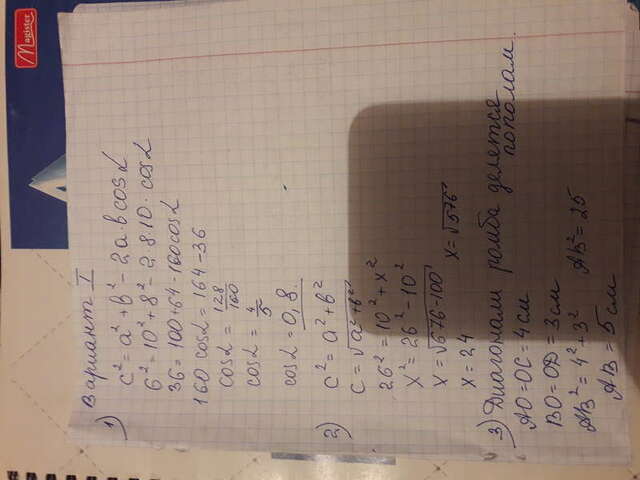 Вариант I
1) c² = a² + b² - 2ab cosα
6² = 10² + 8² - 2·8·10·cosα
36 = 100 + 64 - 160cosα
160 cosα = 164 - 36
cosα = 128/160
cosα = 4/5
cosα = 0,8.
2) c² = a² + b²
c = √a² + b²
26² = 10² + x²
x² = 26² - 10²
x = √676 - 100 x = √576
x = 24
3) Диагонали ромба делется пополам.
AO = OC = 4 см
BO = OD = 3 см
AB² = 4² + 3² AB² = 25
AB = 5 см
Magister